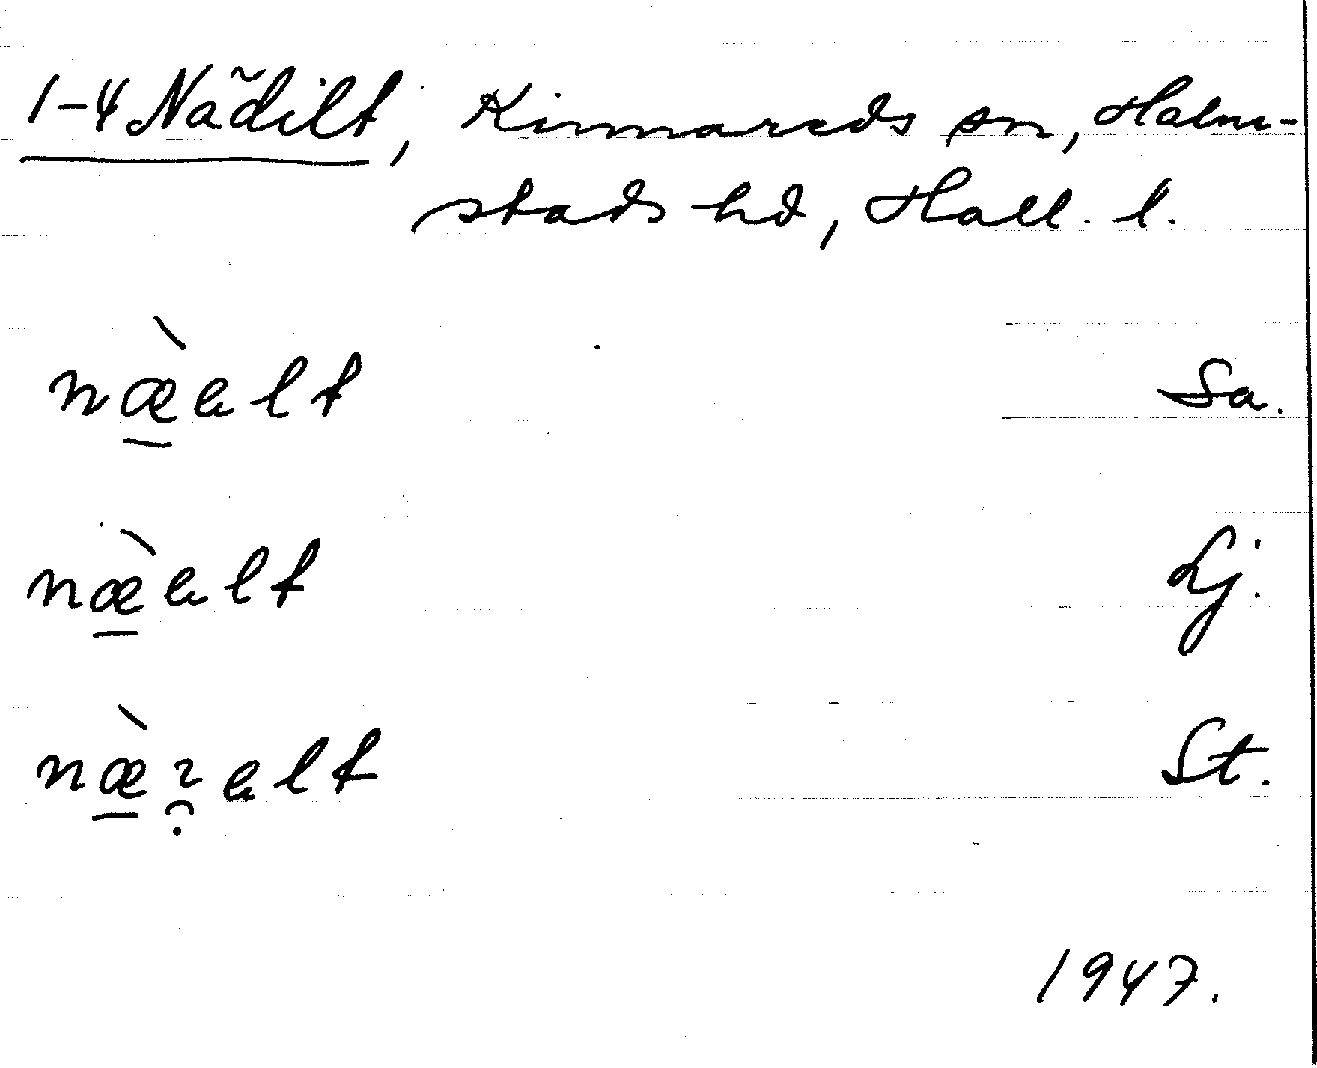 1-4 Nädilt, Kinnareds sn, Halm-
stads hd, Hall. l.
næ̠̀alt Sa.
næ̠̀alt Lj.
næ̠̀ɿ̯alt St.
1947.